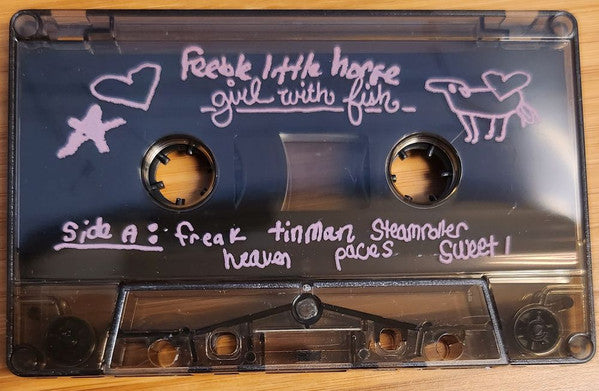 feeble little horse
girl with fish
Side A: freak tinman Steamroller
heaven paces Sweet!